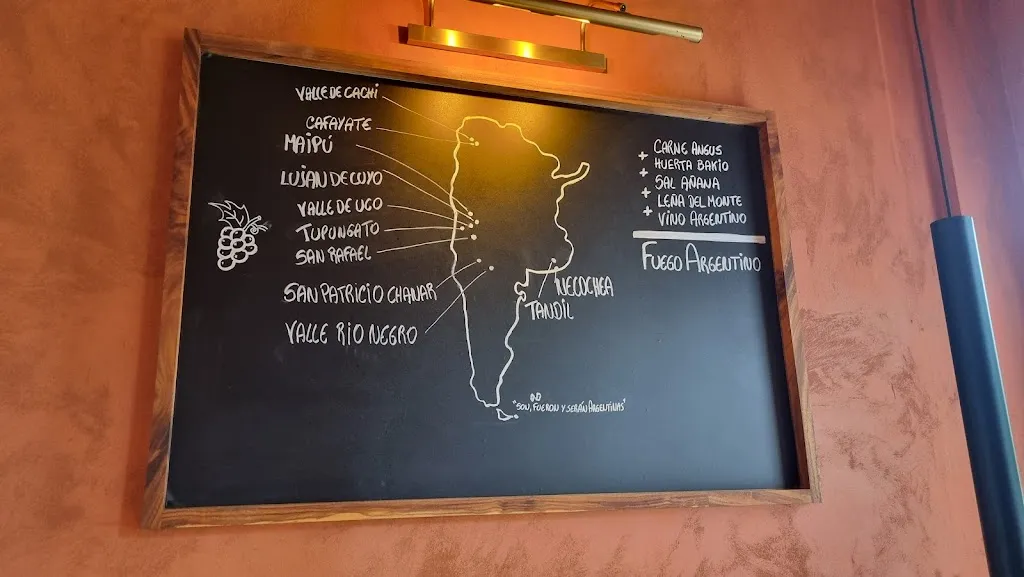 VALLE DE CACHI
CAFAYATE
MAIPÚ
LUJAN DE CUYO
VALLE DE UCO
TUPUNGATO
SAN RAFAEL
SAN PATRICIO CHANAR
VALLE RIO NEGRO
NECOCHEA
TANDIL
"SON, FUERON Y SERÁN ARGENTINAS"
CARNE ANGUS
+ HUERTA BAKIO
+ SAL AÑANA
+ LEÑA DEL MONTE
+ VINO ARGENTINO
FUEGO ARGENTINO